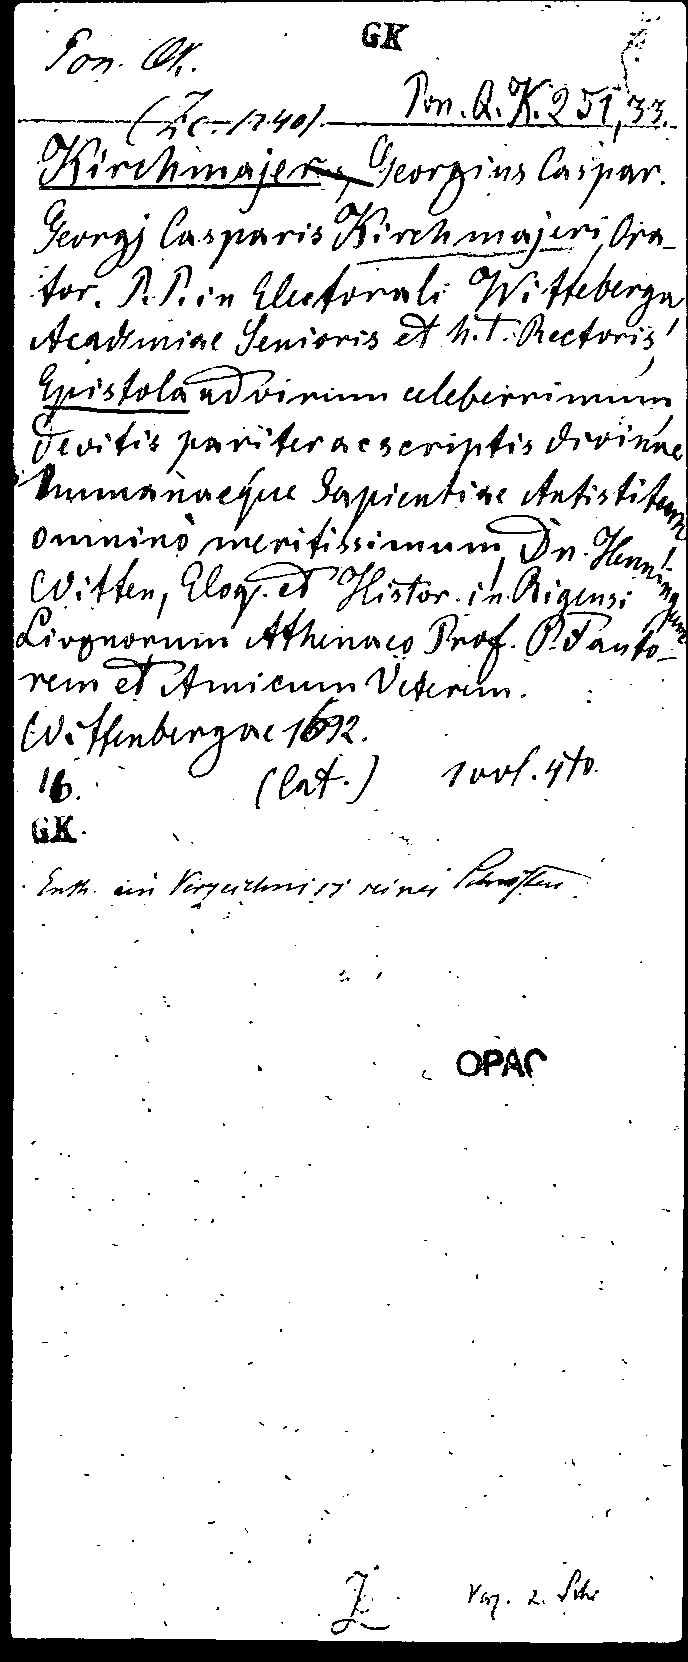 GK
Pon. QK.
Pon. Q. K. 251, 33.
(Zc. 1740)
Kirchmajer, Georgius Caspar.
Georgj Casparis Kirchmajeri, Ora-
tor. P. P. in Electorali Witteberga
Academiae Senioris et h. t. Rectoris,
Epistola ad virum celeberrimum,
de vitis pariter ac scriptis divinae
humanaeque Sapientiae Antistitem
omnino meritissimum, Dn. Henningum
Witten, Eloq. et Histor. in Rigensi
Livonorum Athenaeo Prof. P. Fauto-
rem et Amicum Veterem.
Wittenbergae 1692.
16. (lat.) 1 vol. 4to.
GK.
Enth. ein Verzeichniss seiner Schriften
OPAC
Z Verz. s. Schr